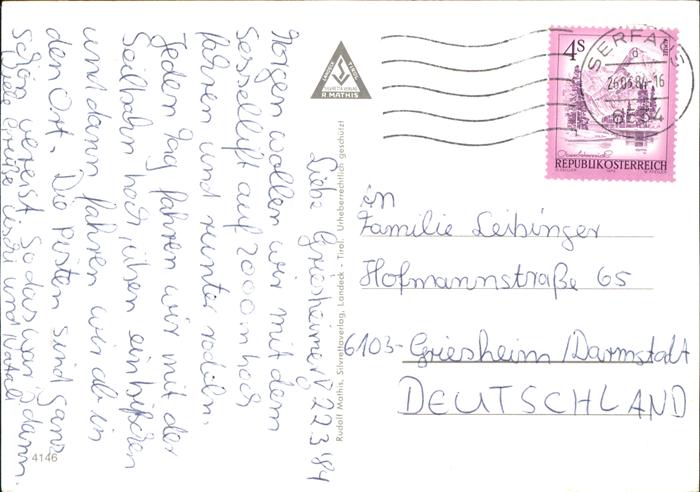 Liebe Griesheimer! 22.3.84
Morgen wollen wir mit dem
Sessellift auf 2000 m hoch
fahren und runter rodeln.
Jeden Tag fahren wir mit der
Seilbahn hoch, üben ein bißchen
und dann fahren wir ab in
den Ort. Die Pisten sind ganz
schön vereist. So das war's dann.
Liebe Grüße und
4146
R. MATHIS
Rudolf Mathis, Silvrettaverlag, Landeck - Tirol. Urheberrechtlich geschützt!
4S
REPUBLIK ÖSTERREICH
SERFAUS
26.03.84-16
6534
An
Familie Leibinger
Hofmannstraße 65
6103-Griesheim/Darmstadt
DEUTSCHLAND